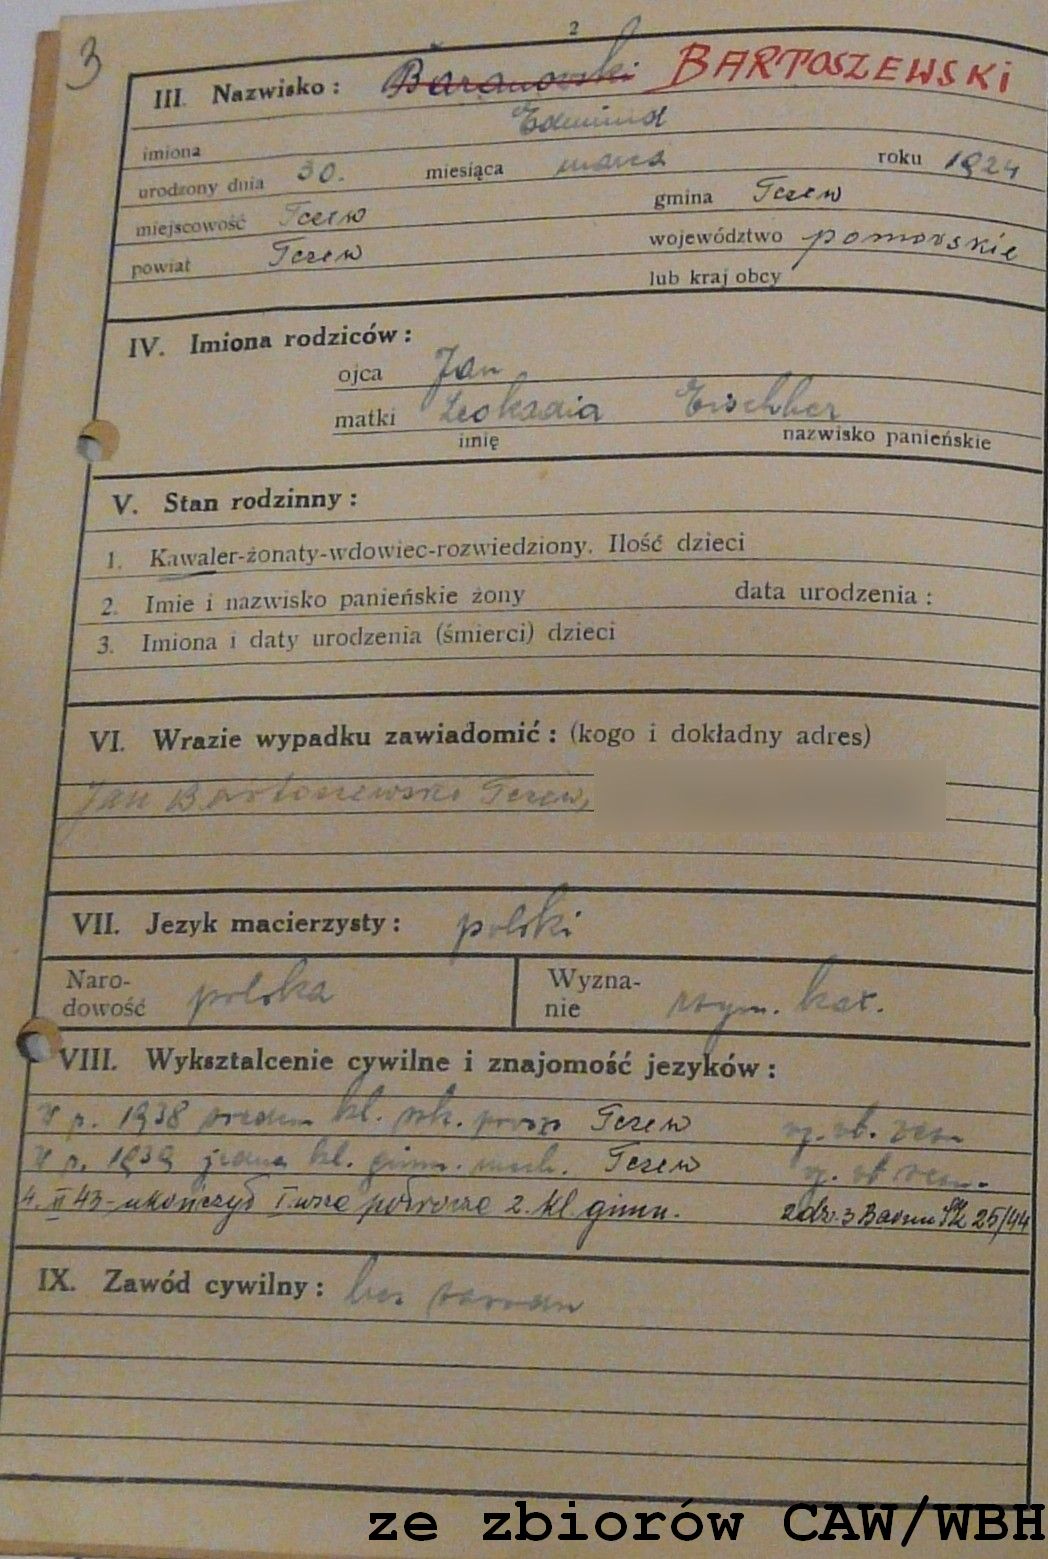 3
2
III. Nazwisko : Baranowski BARTOSZEWSKI
imiona Edmund
urodzony dnia 30. miesiąca marca roku 1924
miejscowość Tczew gmina Tczew
powiat Tczew województwo pomorskie
lub kraj obcy
IV. Imiona rodziców :
ojca Jan
matki Leokadia
imię nazwisko panieńskie
V. Stan rodzinny :
1. Kawaler-żonaty-wdowiec-rozwiedziony. Ilość dzieci
2. Imie i nazwisko panieńskie żony data urodzenia :
3. Imiona i daty urodzenia (śmierci) dzieci
VI. Wrazie wypadku zawiadomić : (kogo i dokładny adres)
Jan Bartoszewski Tczew,
VII. Jezyk macierzysty : polski
Naro-
dowość polska
Wyzna-
nie rzym. kat.
VIII. Wyksztalcenie cywilne i znajomość jezyków :
W r. 1938 siedem kl. szk. Tczew
W r. 1939 jedna kl. gimn. Tczew
4. II 43 - ukończył I.wsze półrocze 2. kl gimn. 25/44
IX. Zawód cywilny : bez zawodu
ze zbiorów CAW/WBH